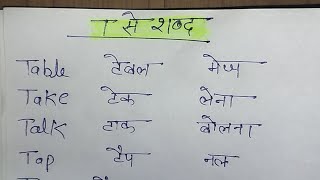 T से शब्द
Table टेबल मेज
Take टेक लेना
Talk टाक बोलना
Tap टैप नल